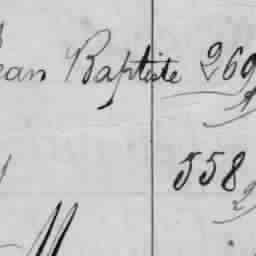 ean Baptiste 269
558